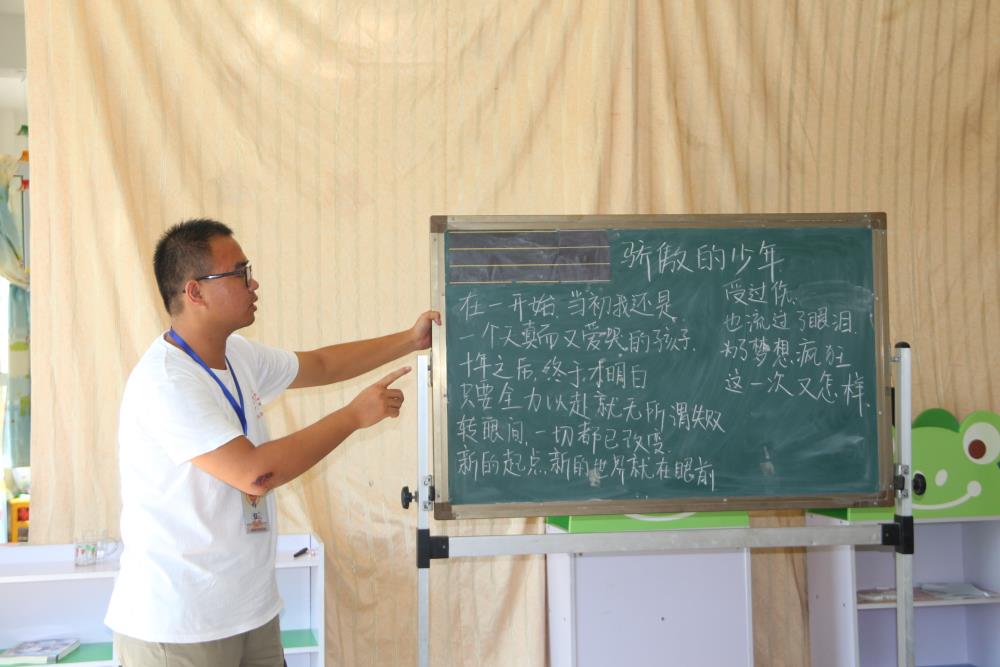 骄傲的少年
在一开始,当初我还是
一个天真而又爱哭的孩子.
十年之后,终于才明白
只要全力以赴就无所谓失败
转眼间,一切都已改变.
新的起点,新的世界就在眼前
受过伤.
也流过了眼泪.
为了梦想疯狂
这一次又怎样